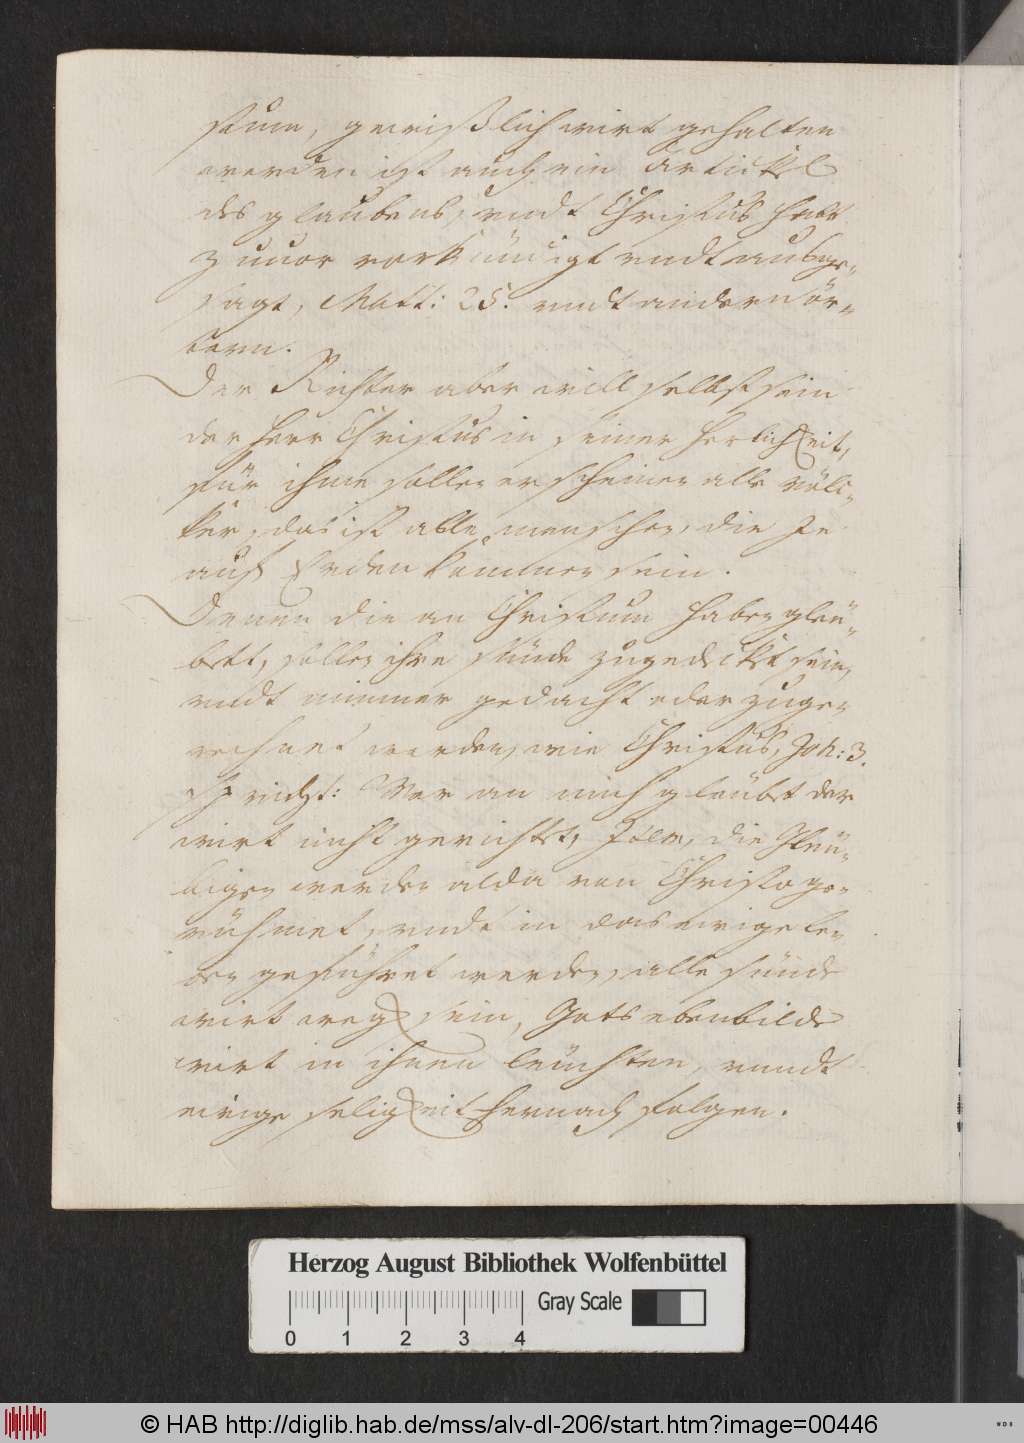 stum, gewißlich wirt gehalten
werden ist auch ein Artickel
des glaubens, undt Christus hatt
zuuor vorkündigt undt ausge-
sagt, Matt: 25. undt andern ör-
tern.
Der Richter aber will selbst sein
der Herr Christus in seiner Herlichkeit,
für ihme sollen erscheinen alle völ-
ker, das ist alle menschen, die Je
auf Erden kommen sein.
Denen die an Christum haben gleü-
bett, sollen ihre sünde zugedecket sein,
undt nimmer gedacht oder zuge-
rechnet werden, wie Christus, Joh: 3.
spricht: Wer an mich gleübet der
wirt nicht gerichtet, die Gleü-
bigen werden alda von Christo ge-
rühmet, undt in das ewige le-
ben geführet werden, alle sünde
wirt weg sein, Gots ebenbilde
wirt in ihnen leuchten, unndt
ewige seligkeit hernach folgen.
Herzog August Bibliothek Wolfenbüttel
Gray Scale
0 1 2 3 4
© HAB http://diglib.hab.de/mss/alv-dl-206/start.htm?image=00446